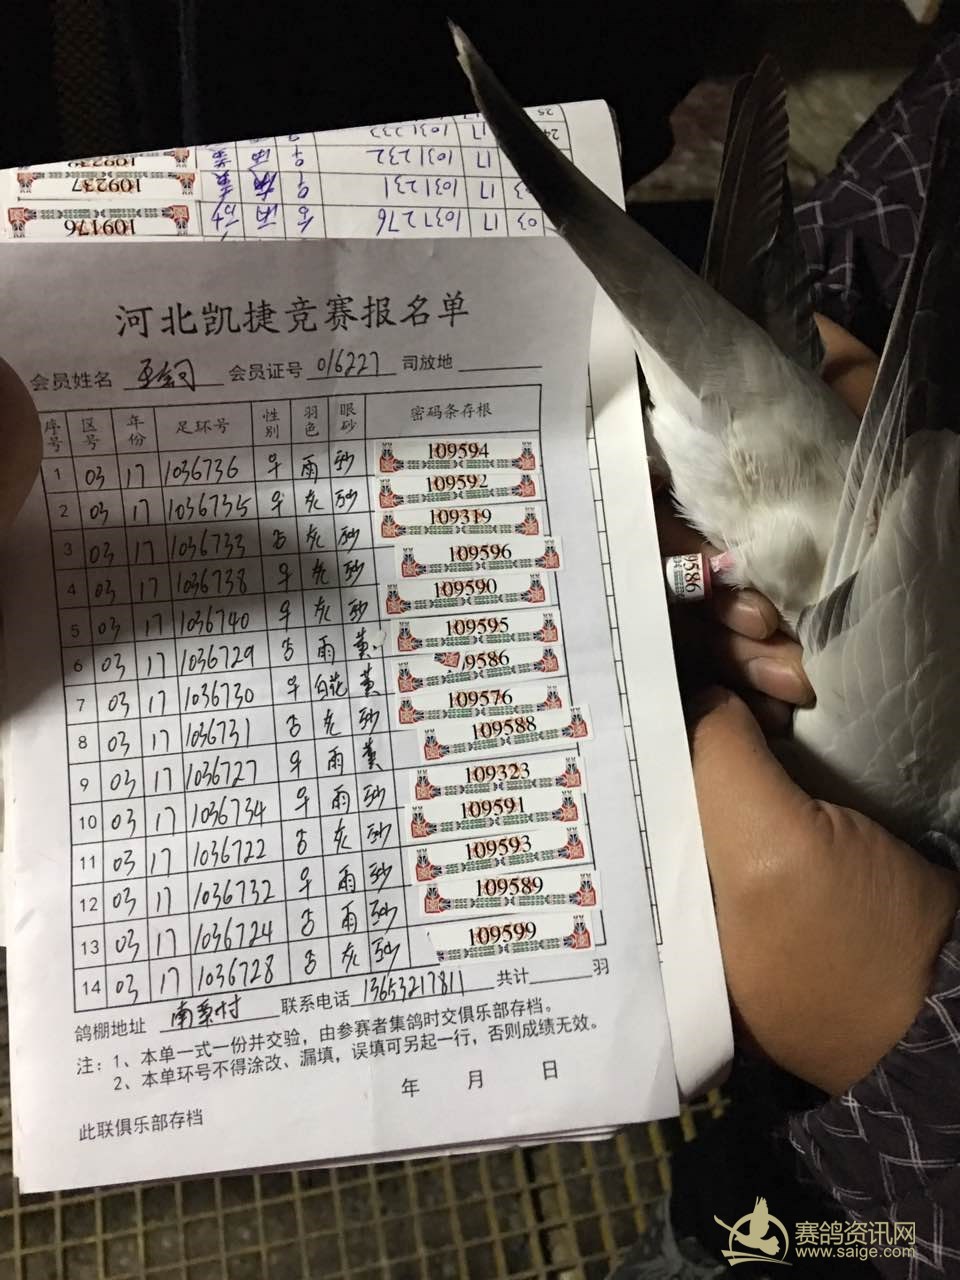 109239
109237
109176
1031233 17
1031232 17
1031231 17 03
1037276 17 03
河北凯捷竞赛报名单
会员姓名 会员证号 016227 司放地
序号 区号 年份 足环号 性别 羽色 眼砂 密码条存根
1 03 17 1036736 雨 砂 109594
2 03 17 1036735 灰 砂 109592
3 03 17 1036733 灰 砂 109319
4 03 17 1036738 灰 砂 109596
5 03 17 1036740 灰 砂 109590
6 03 17 1036729 雨 黄 109595
7 03 17 1036730 白花 黄 9586
8 03 17 1036731 灰 砂 109576
9 03 17 1036727 雨 黄 109588
10 03 17 1036734 雨 砂 109323
11 03 17 1036722 灰 砂 109591
12 03 17 1036732 雨 砂 109593
13 03 17 1036724 雨 砂 109589
14 03 17 1036728 灰 砂 109599
鸽棚地址 南栗村 联系电话 13653217811 共计 羽
注：1、本单一式一份并交验，由参赛者集鸽时交俱乐部存档。
2、本单环号不得涂改、漏填，误填可另起一行，否则成绩无效。
年 月 日
此联俱乐部存档
9586
赛鸽资讯网
www.saige.com